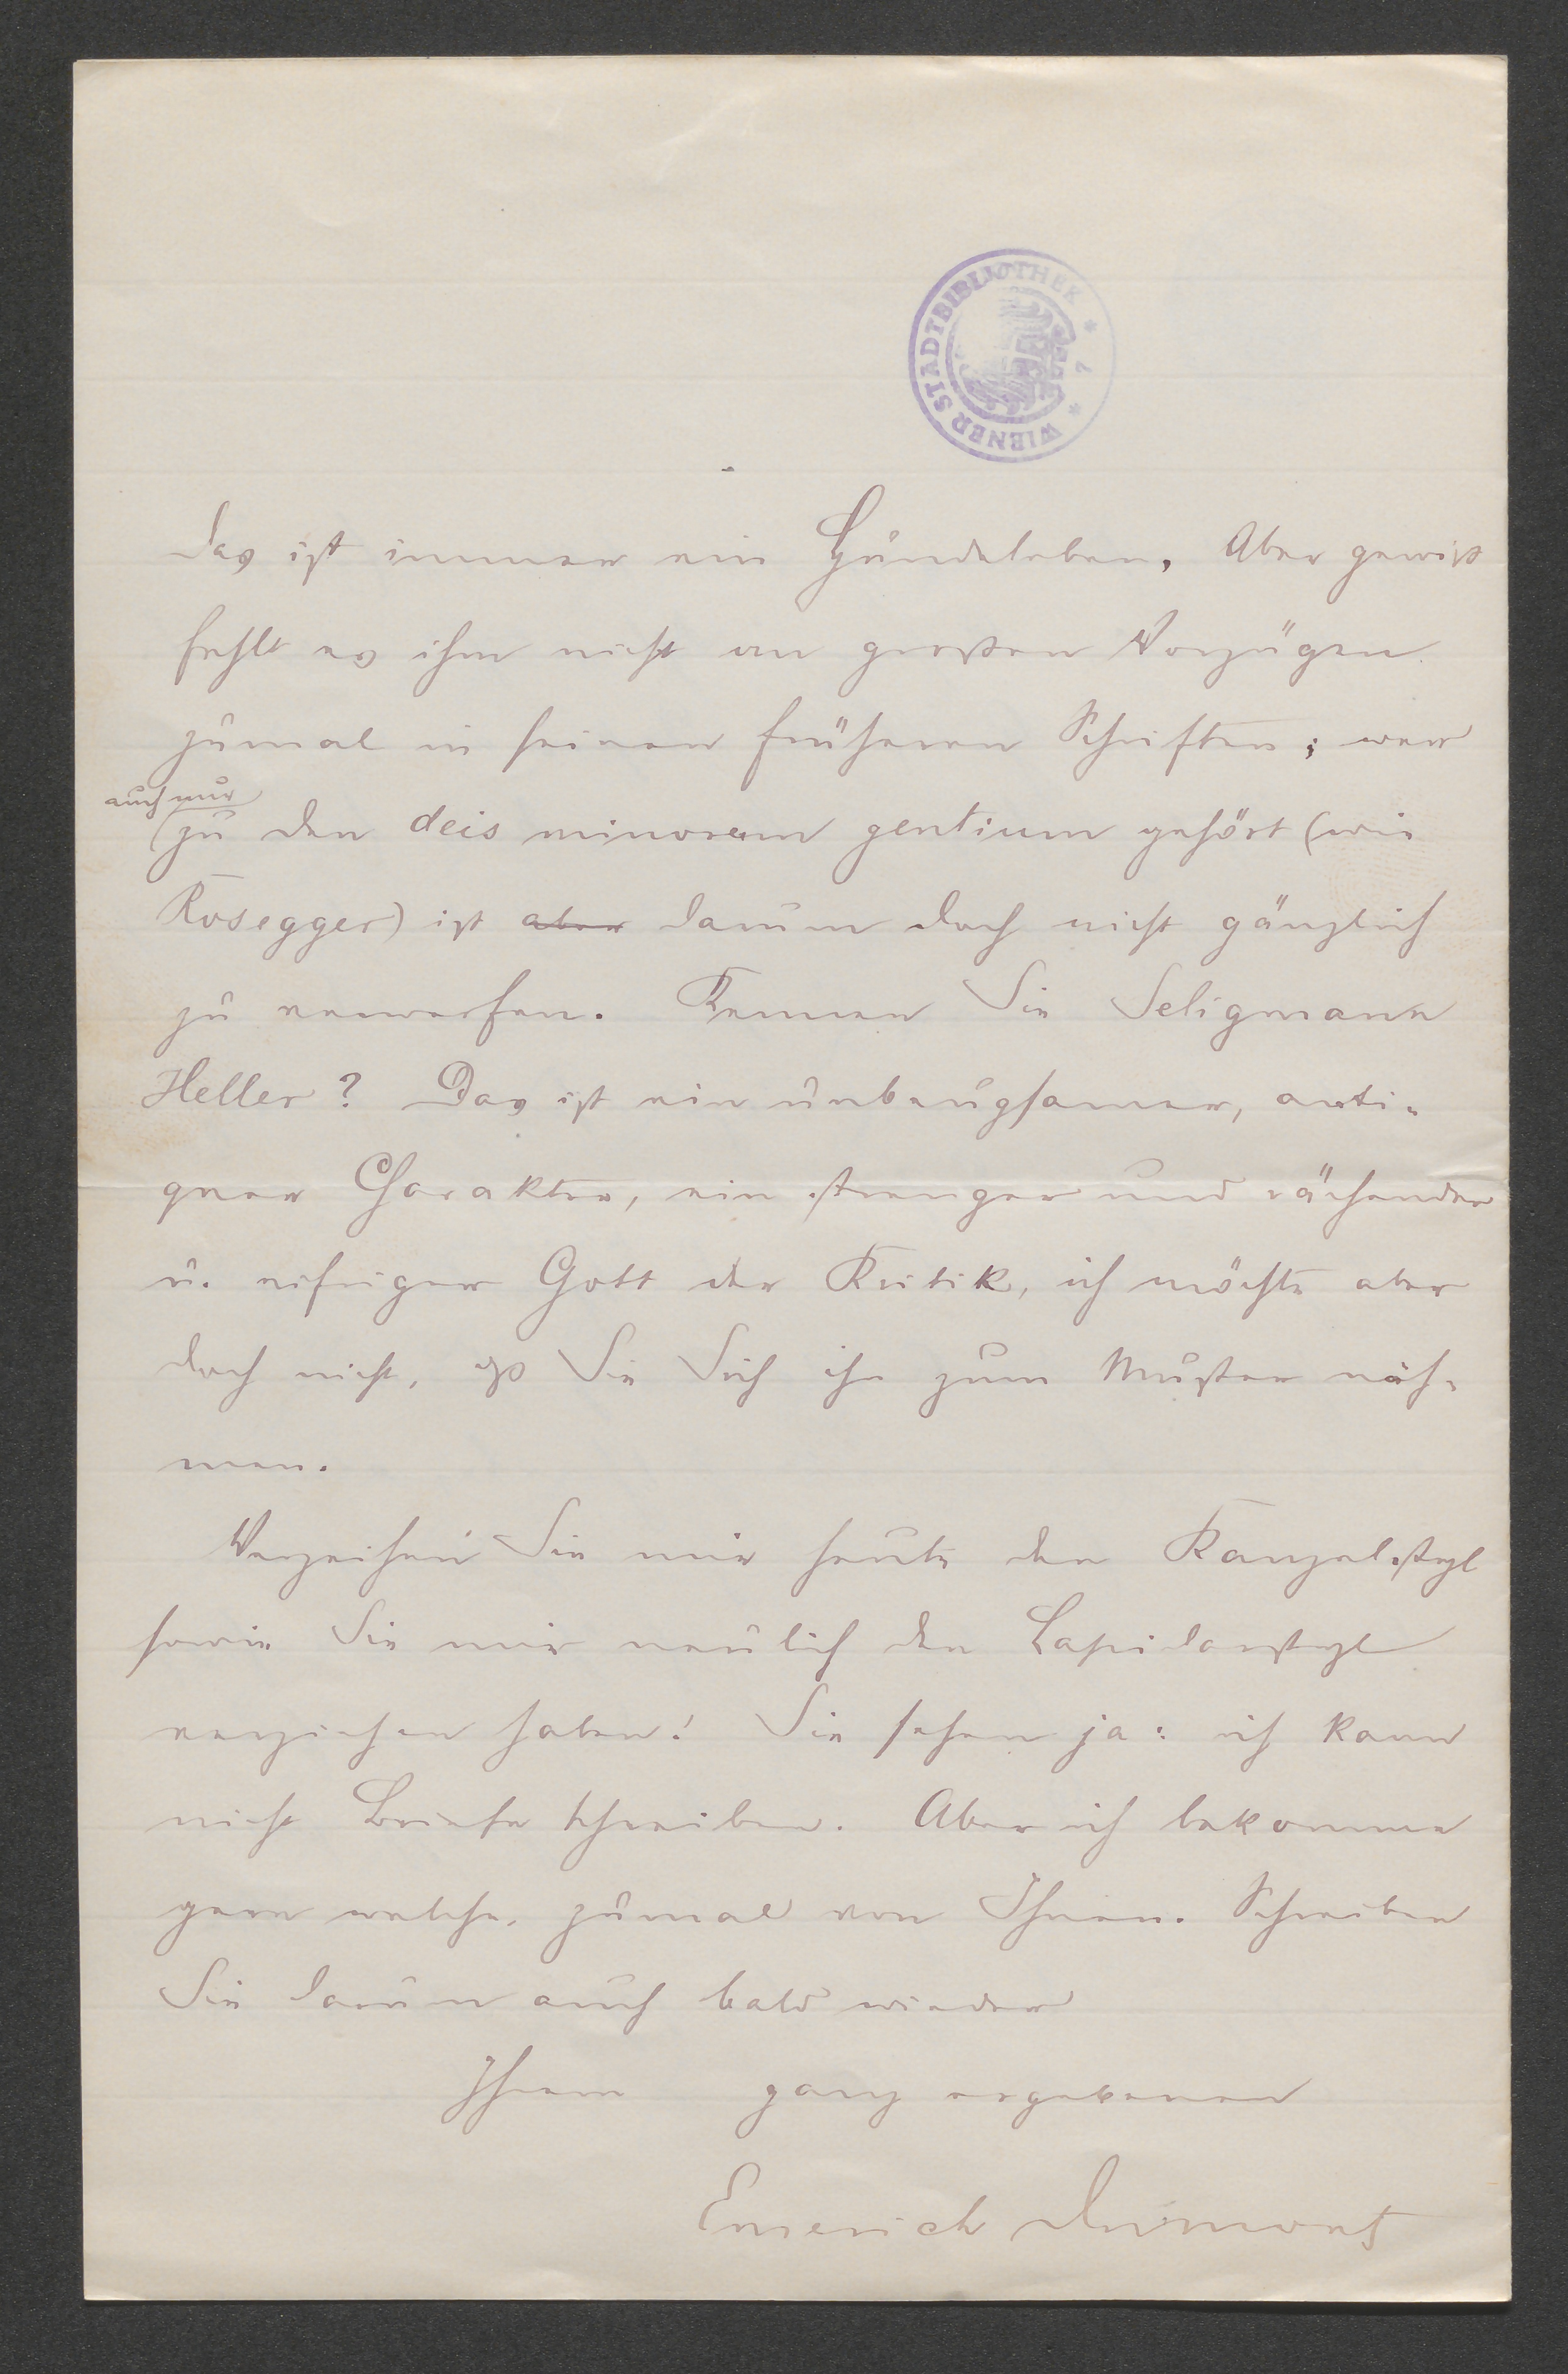 WIENER STADTBIBLIOTHEK * 7 *
das ist immer ein Hundeleben. Aber gewiß
fehlt es ihm nicht an großen Vorzügen
zumal in seinen früheren Schriften; wer
auch nur
zu den deis minorum gentium gehört (wie
Rosegger) ist aber darum doch nicht gänzlich
zu verwerfen. Kennen Sie Seligmann
Heller? Das ist ein unbeugsamer, anti-
quer Charakter, ein strenger und rächender
u. eifriger Gott der Kritik, ich möchte aber
doch nicht, dß Sie Sich ihn zum Muster näh-
men.
Verzeihen Sie mir heute den Kanzelstyl
sowie Sie mir neulich den Lapidarstyl
verziehen haben! Sie sehen ja: ich kann
nicht Briefe schreiben. Aber ich bekomme
gern welche, zumal von Ihnen. Schreiben
Sie darum auch bald wieder
Ihrem ganz ergebenen
Emerich Dumont